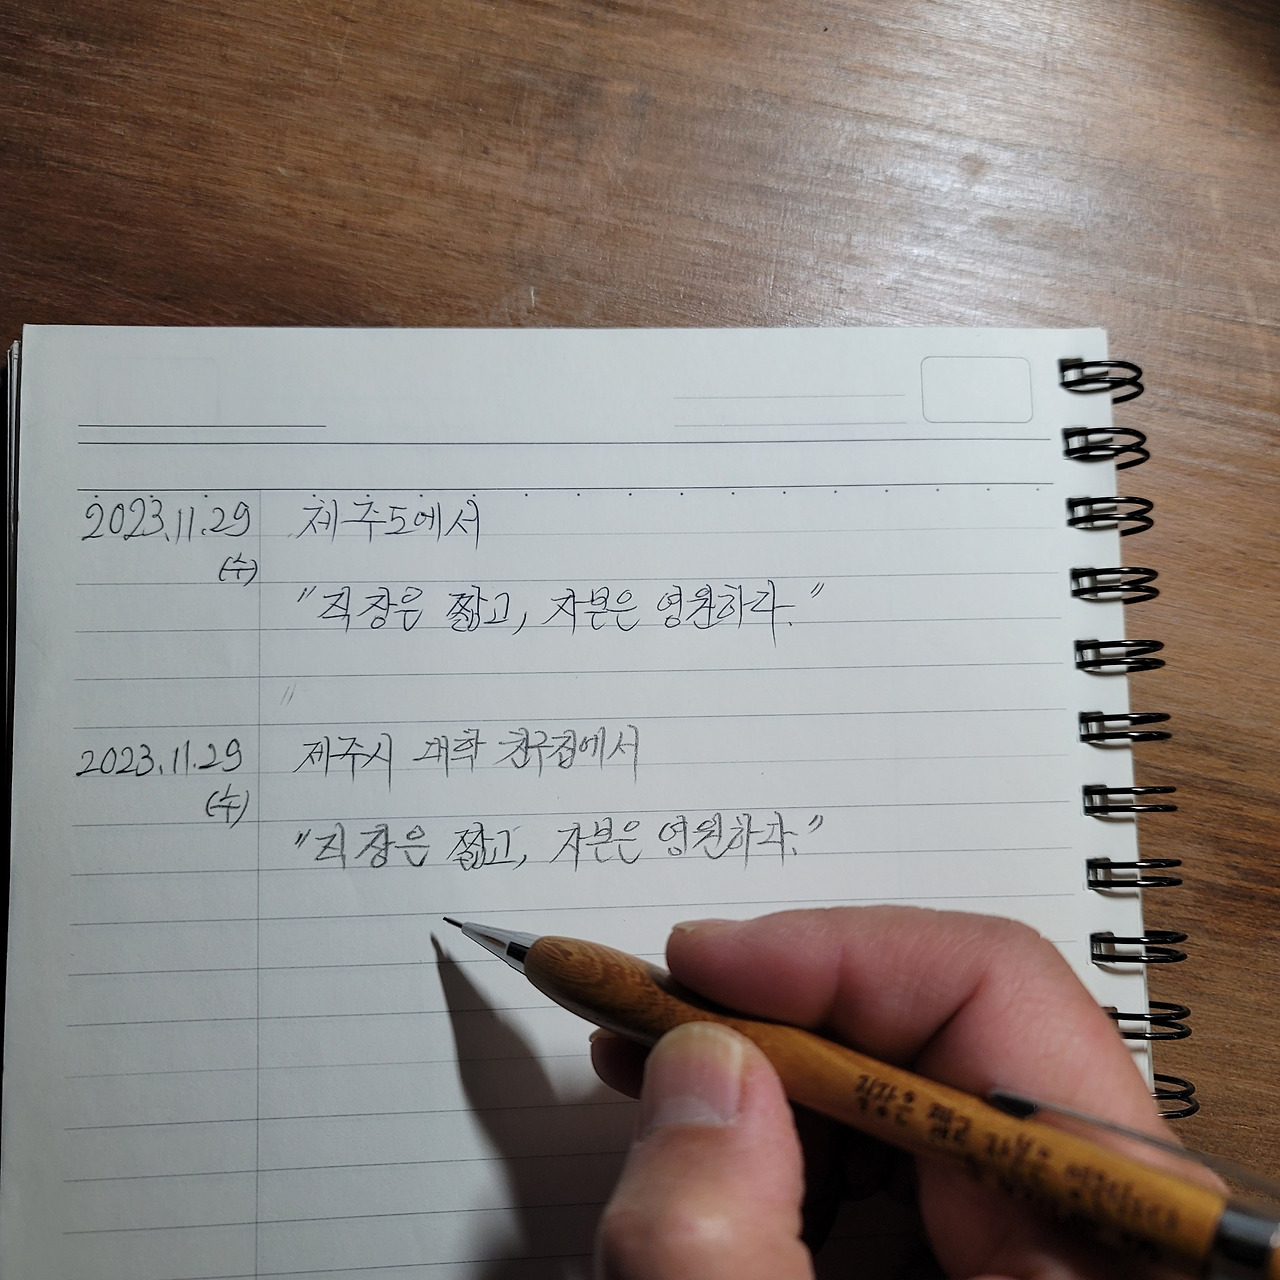 2023.11.29 제주도에서
(수)
"직장은 짧고, 자본은 영원하다."
"
2023.11.29 제주시 대학 친구집에서
(수)
"직장은 짧고, 자본은 영원하다."
직장은 짧고 자본은 영원하다